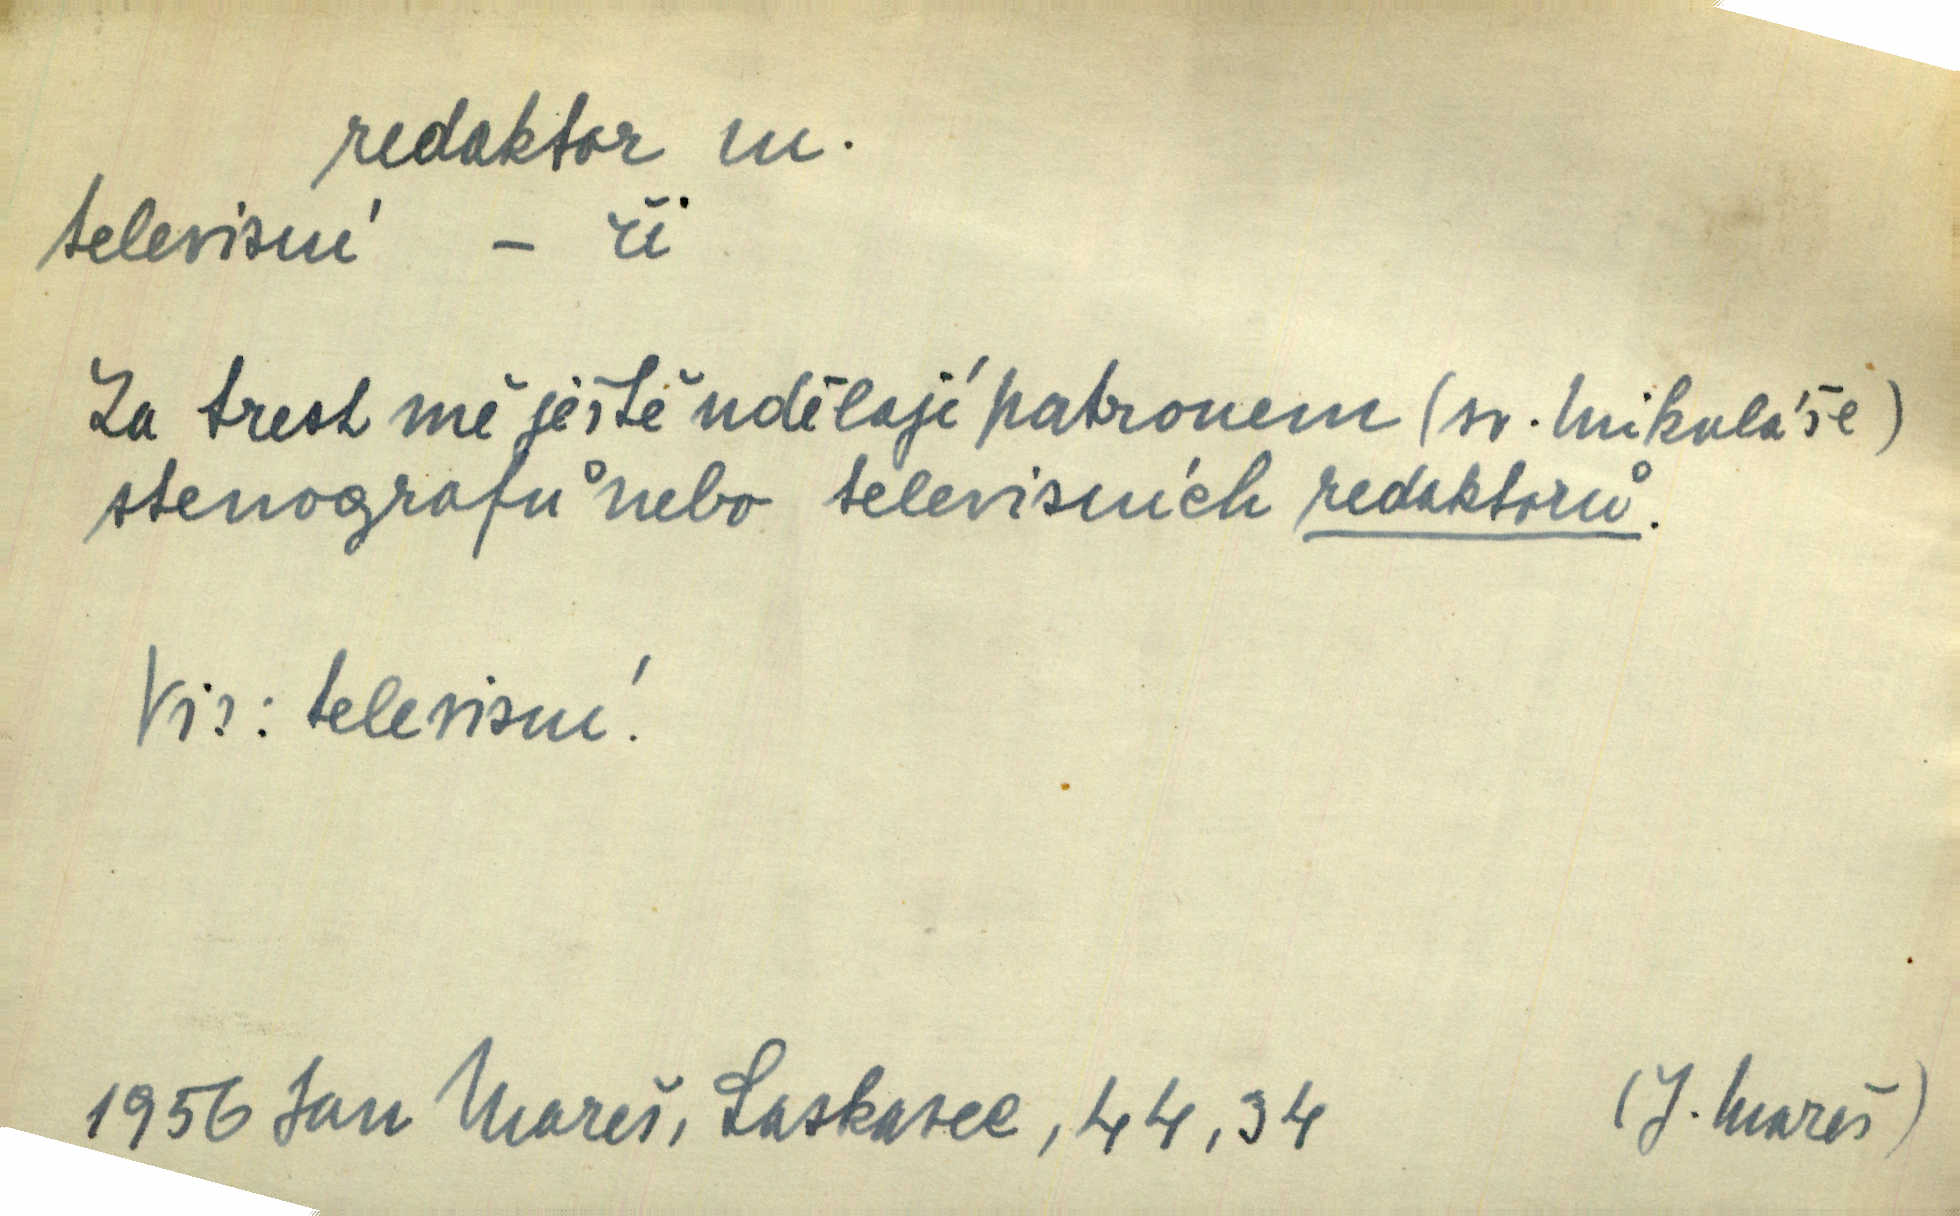 redaktor m.
televisní – ři
Za trest mě ještě udělají patronem (sv. Mikuláše)
stenografů nebo televisních redaktorů.
Viz: televisní.
1956 Jan Mareš, Laskavec, 44, 34 (J. Mareš)